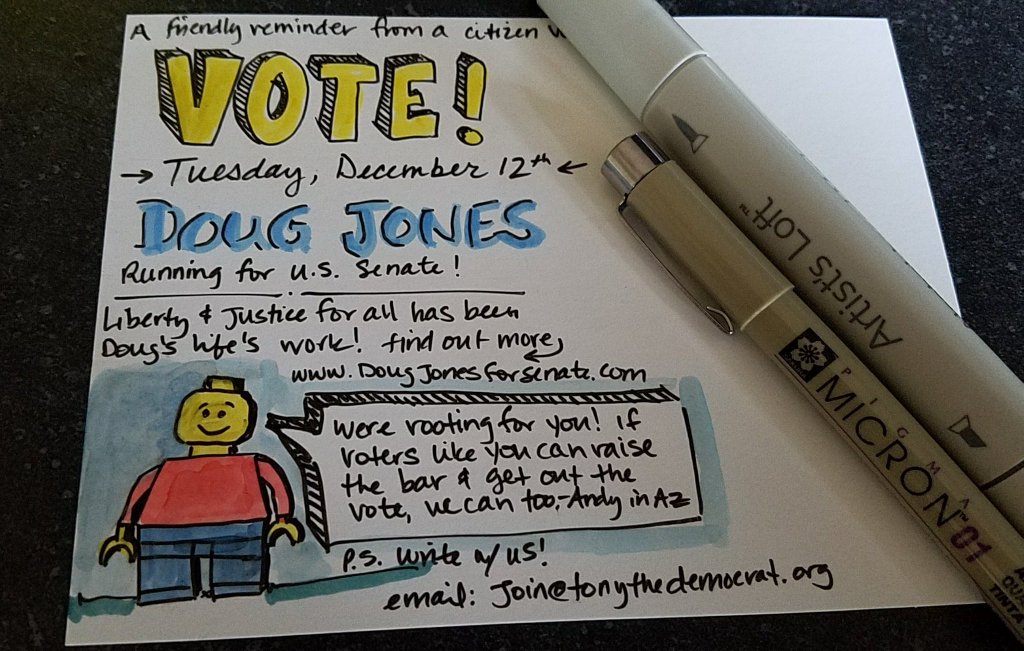 A friendly reminder from a citizen
VOTE!
→ Tuesday, December 12th ←
DOUG JONES
Running for U.S. Senate!
Liberty & Justice for all has been
Doug's life's work! find out more
www.DougJonesforsenate.com
were rooting for you! if
voters like you can raise
the bar & get out the
vote, we can too.-Andy in AZ
P.S. Write w/ us!
email: Join@tonythedemocrat.org
Artist's Loft™
PIGMA
MICRON™ 01